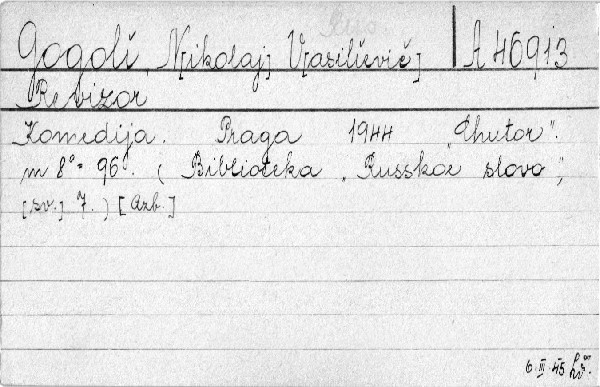 Gogolí, Nikolaj Vasiljevič] A 46913
Rebizor
Komedija. Praga 1944 „Chutor".
m 8° - 96°. (Biblioteka „Russkoe slovo",
[sv.] 7.) [Azb.]
6.III.45